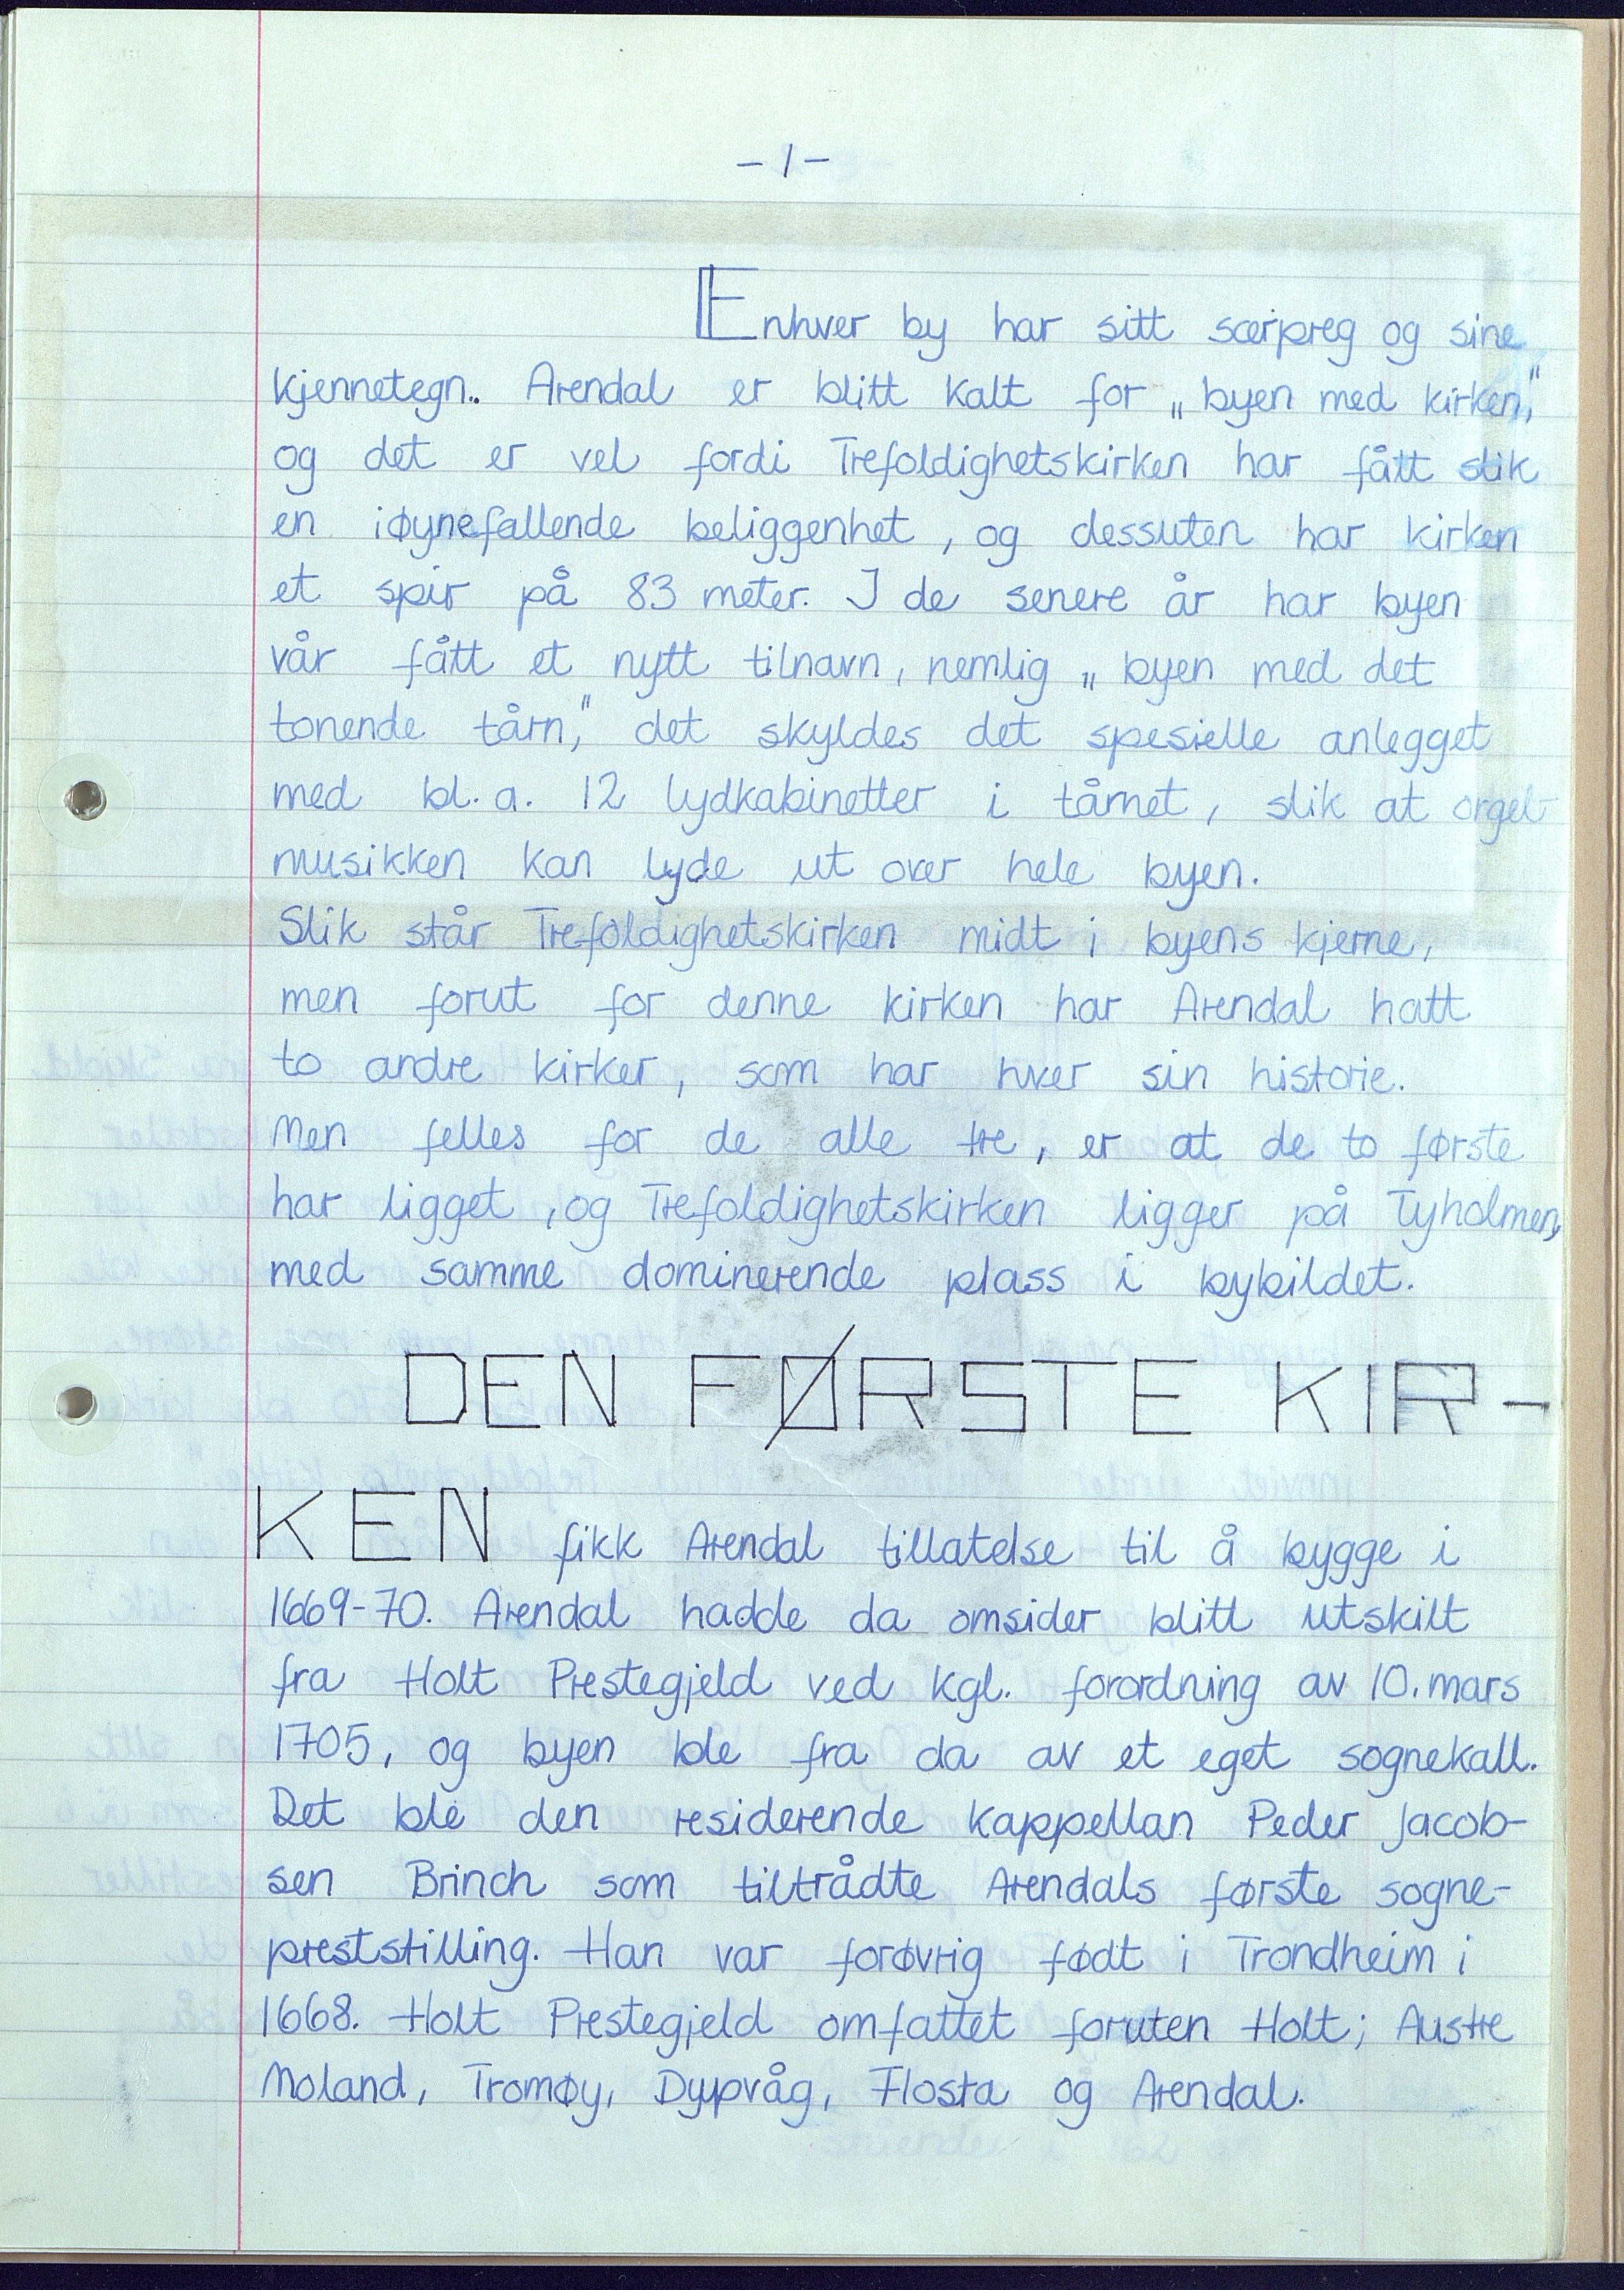 -1-
Enhver by har sitt særpreg og sine
kjennetegn.. Arendal er blitt kalt for „byen med kirken,"
og det er vel fordi Trefoldighetskirken har fått slik
en iøynefallende beliggenhet, og dessuten har kirken
et spir på 83 meter. I de senere år har byen
vår fått et nytt tilnavn, nemlig „byen med det
tonende tårn," det skyldes det spesielle anlegget
med bl.a. 12 lydkabinetter i tårnet, slik at orgel-
musikken kan lyde ut over hele byen.
Slik står Trefoldighetskirken midt i byens kjerne,
men forut for denne kirken har Arendal hatt
to andre kirker, som har hver sin historie.
Men felles for de alle tre, er at de to første
har ligget, og Trefoldighetskirken ligger på Tyholmen,
med samme dominerende plass i bybildet.
DEN FØRSTE KIR-
KEN fikk Arendal tillatelse til å bygge i
1669-70. Arendal hadde da omsider blitt utskilt
fra Holt Prestegjeld ved kgl. forordning av 10. mars
1705, og byen ble fra da av et eget sognekall.
Det ble den residerende kappellan Peder Jacob-
sen Brinch som tiltrådte Arendals første sogne-
preststilling. Han var forøvrig født i Trondheim i
1668. Holt Prestegjeld omfattet foruten Holt; Austre
Moland, Tromøy, Dypvåg, Flosta og Arendal.